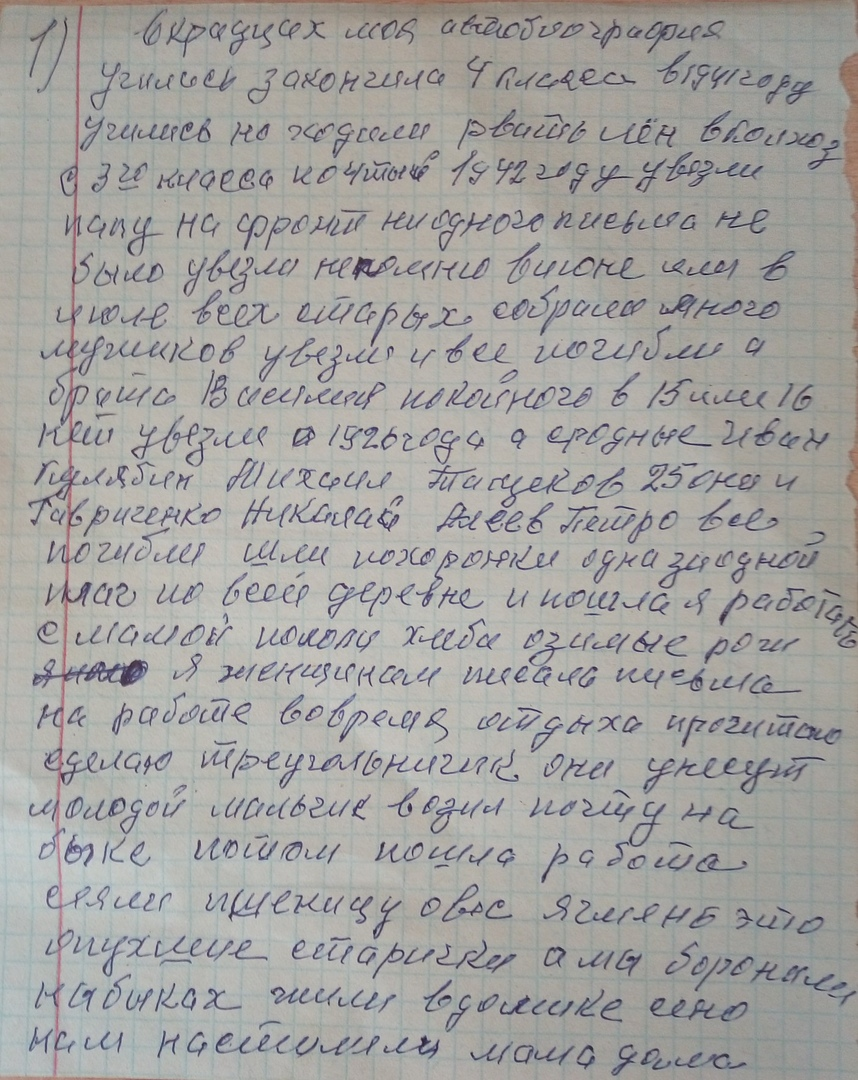 1) вкрадцах моя автобиография
училась закончила 4 класса в 1941 году
училась но ходили рвать лён в колхоз
с 3го класса по 4тый 1942 году увезли
папу на фронт ниодного письма не
было увезли непомню виюне или в
июле всех старых собрали много
мужиков увезли и все погибли а
брата Василия покойного в 15 или 16
лет увезли с 1926 года а сродные Иван
Михаил 25 они и
Гавриченко Николай Агеев Петро все
погибли шли похоронки одна заодной
плач по всей деревне и пошла я работать
с мамой пололи хлеба озимые рожи
я женщинам писала письма
на работе вовремя отдыха прочитаю
сделаю треугольничик они унесут
молодой мальчик возил почту на
быке потом пошла работа
сеяли пшеницу овёс ячмень это
опухшие старички а мы боронили
на быках жили вдомике сено
нам настилили мама дома